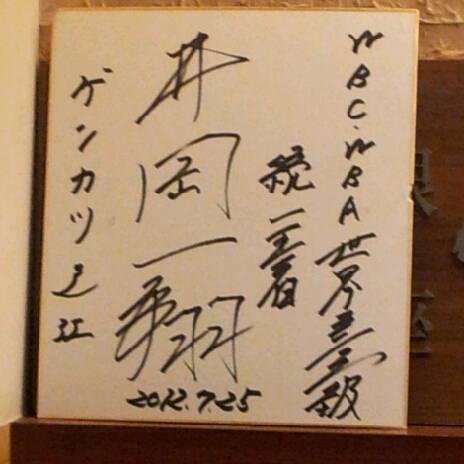 WBC・WBA世界ミニマム級
統一王者
井岡一翔
2012.7.25
ゲンカツ江